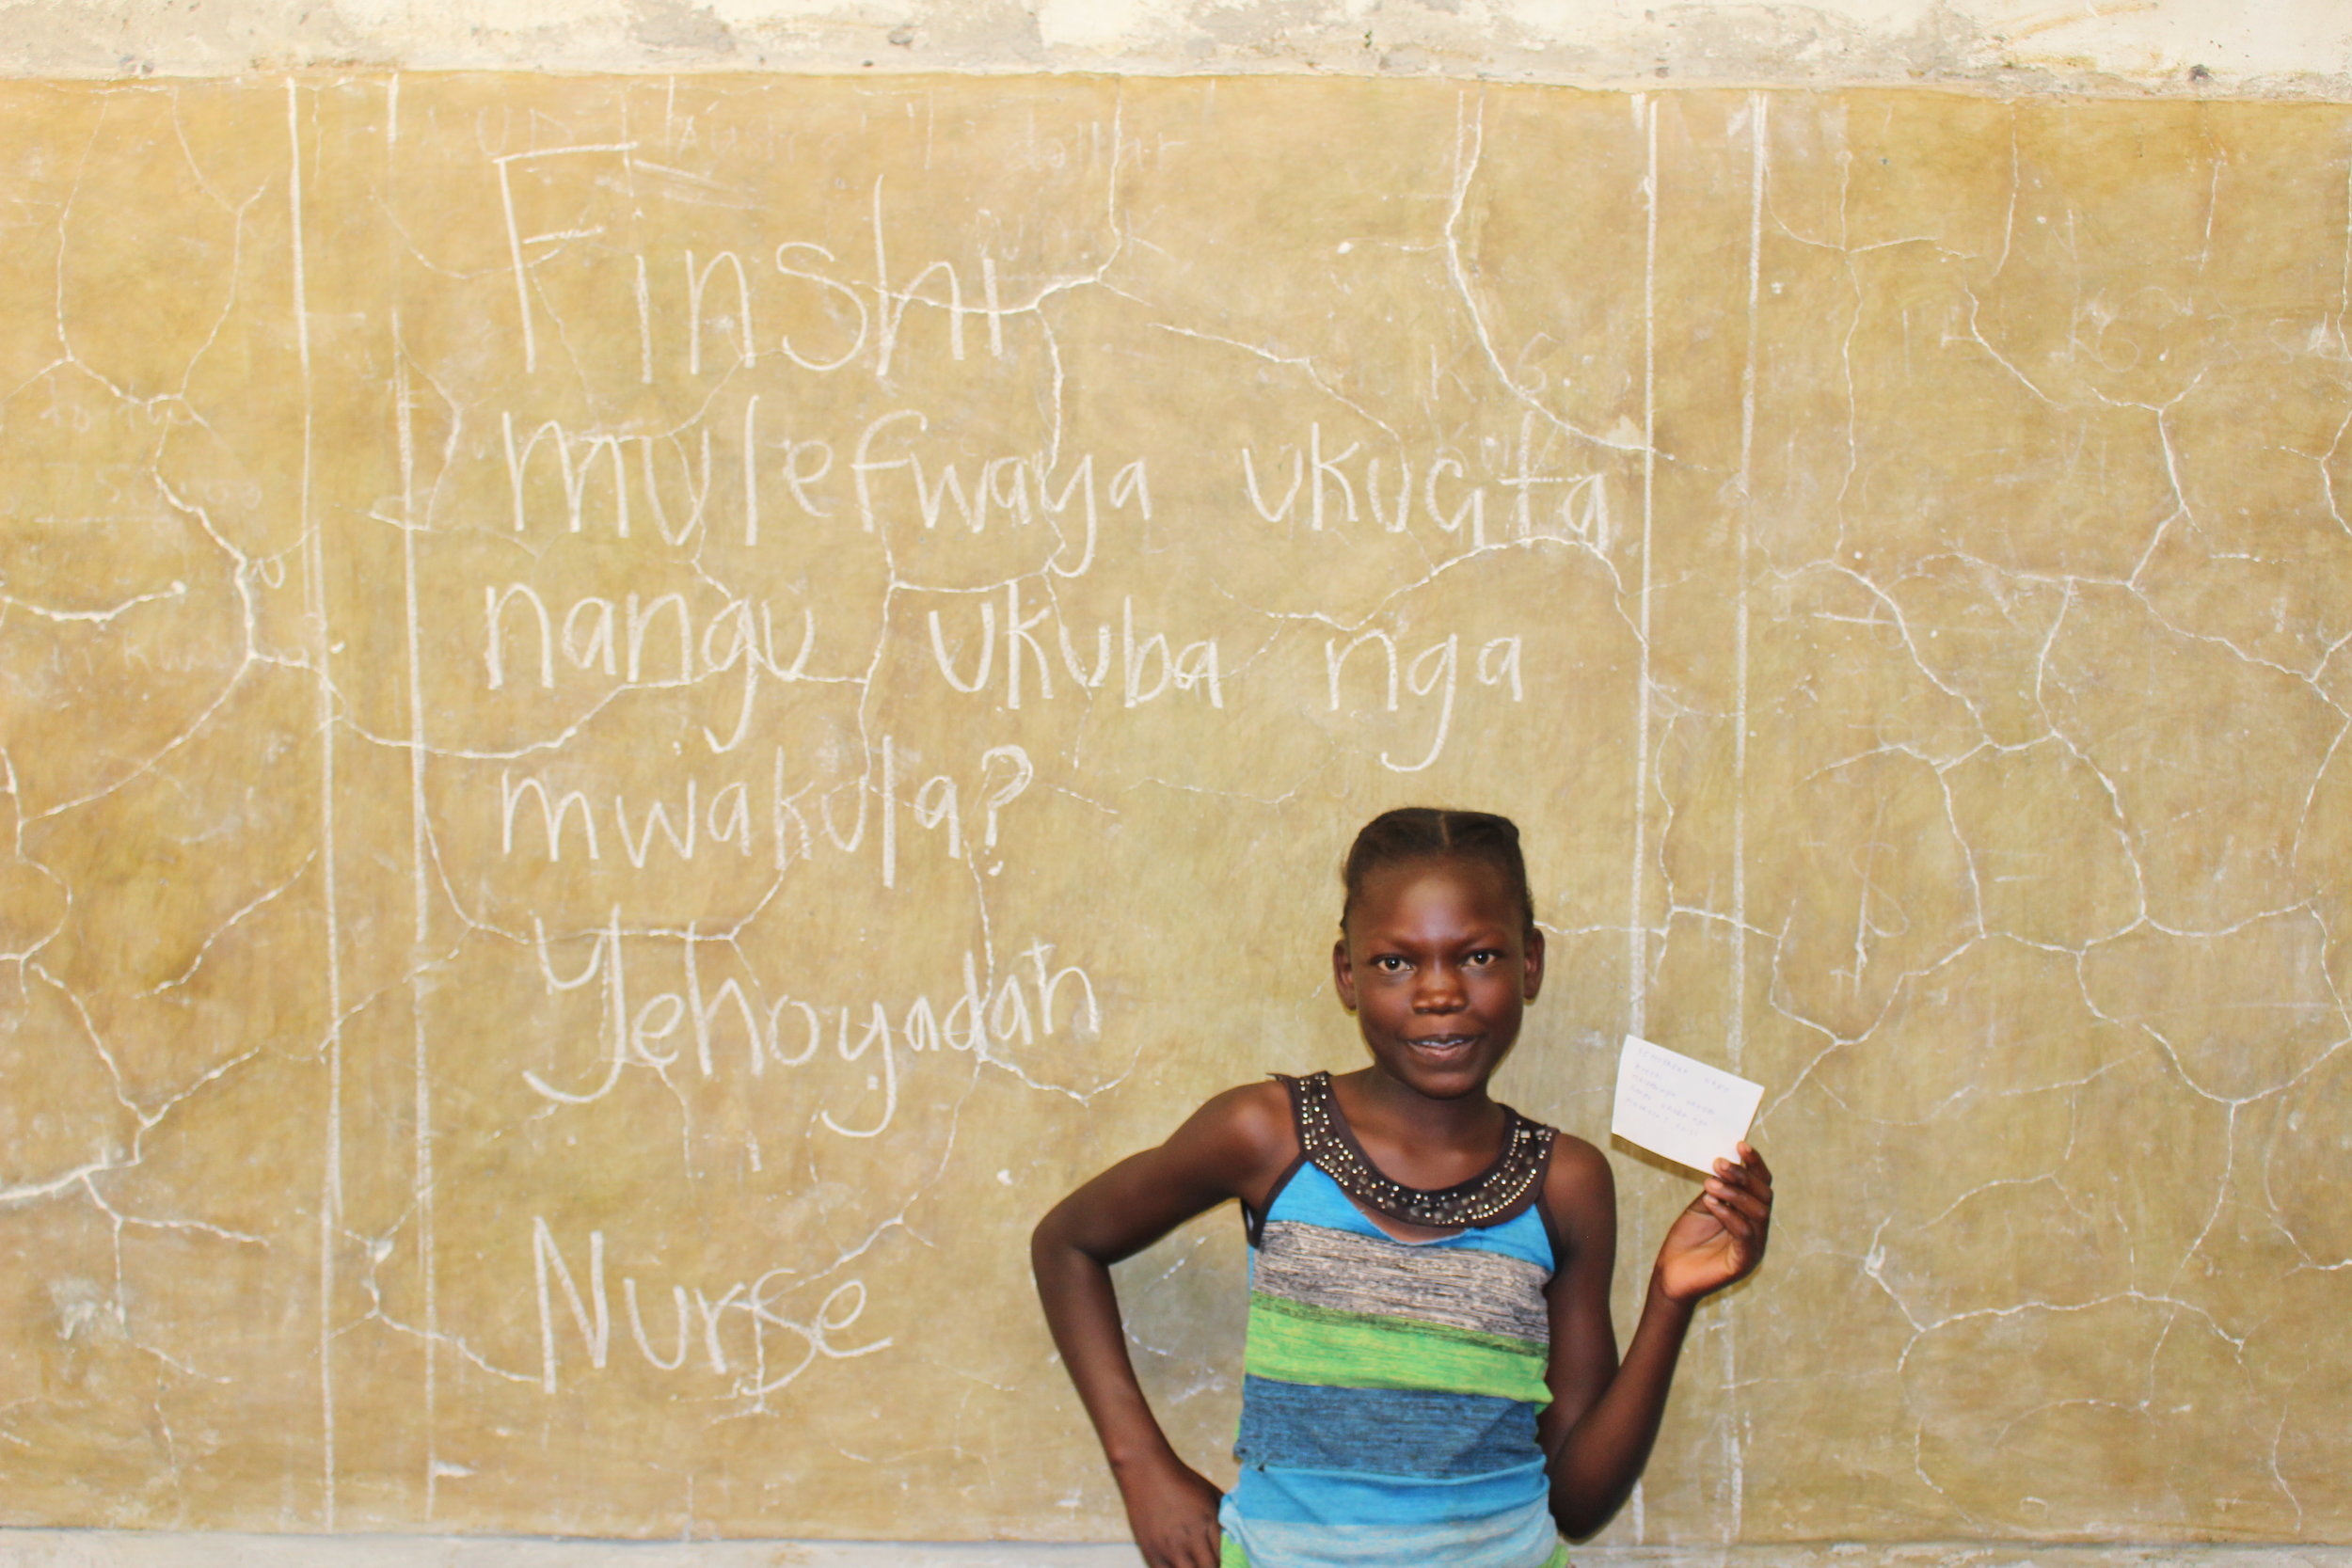 Finshi
mulefwaya ukucita
nangu ukuba nga
mwakula?
Yehoyadah
Nurse